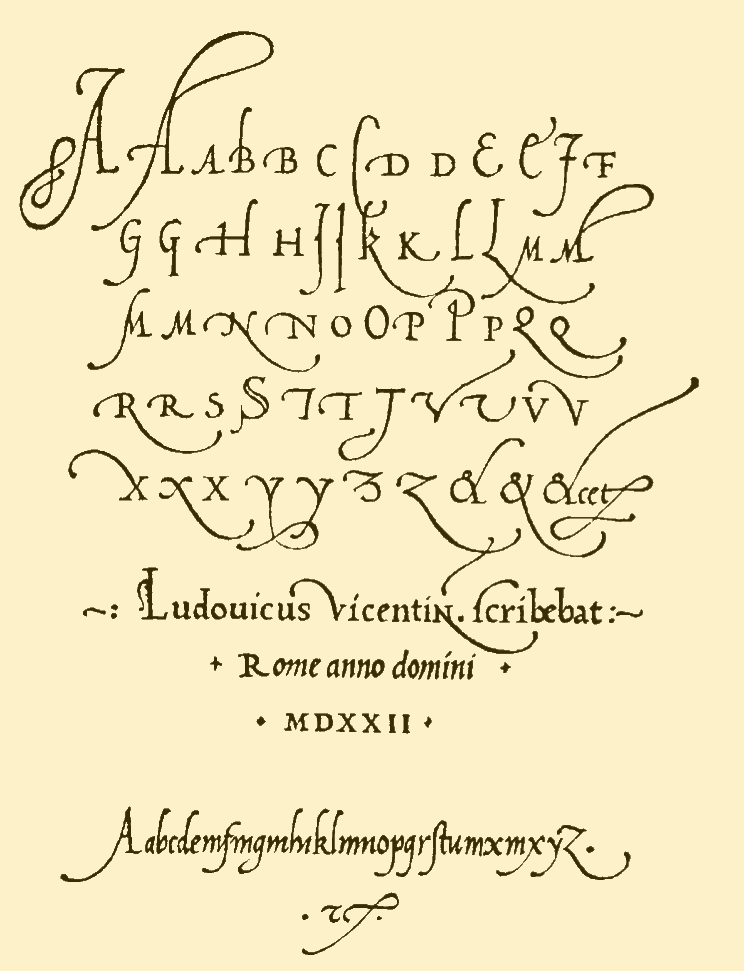 A A A B B C D D D E E F F
G G H H H I I K K L L M M
M M N N O O P P P Q Q
R R S S T T T V V V V
X X X Y Y Z Z & & &cet
~: Ludouicus Vicentin. ſcribebat :~
+ Rome anno domini +
MDXXII
Aabcdemfmgmhıklmnopqrſtumxmxyz.